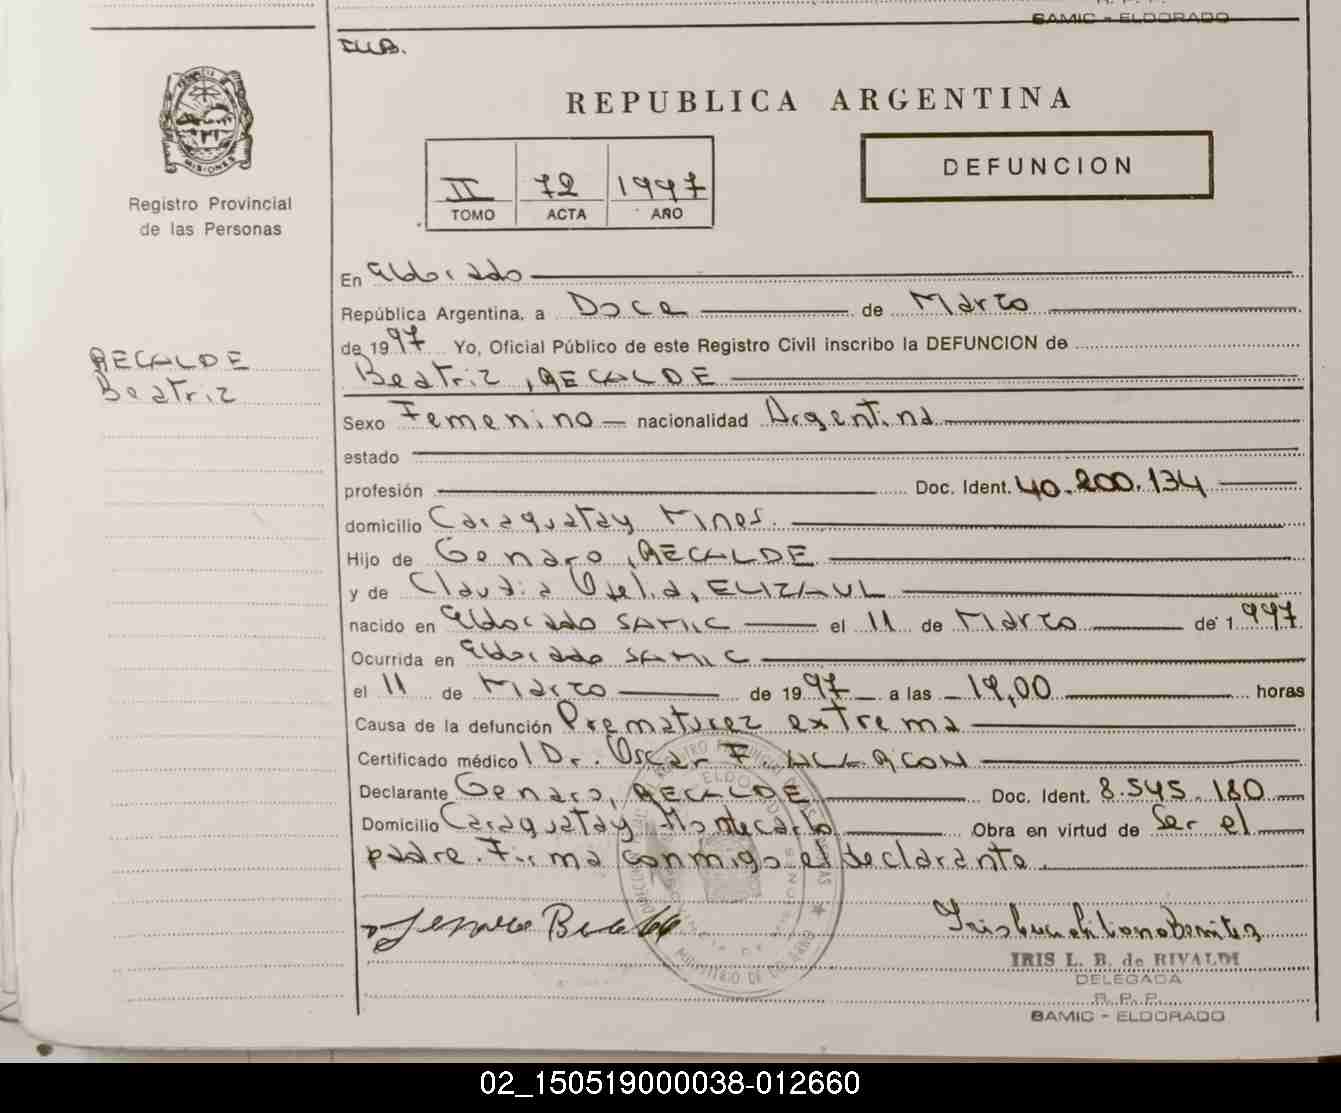 SAMIC - ELDORADO
REPUBLICA ARGENTINA
MISIONES
Registro Provincial
de las Personas
II 72 1997
TOMO ACTA AÑO
DEFUNCION
En Eldorado
República Argentina, a Doce de Marzo
de 1997 Yo, Oficial Público de este Registro Civil inscribo la DEFUNCION de
RECALDE
Beatriz
Beatriz, RECALDE
Sexo Femenino nacionalidad Argentina
estado
profesión Doc. Ident. 40.200.134
domicilio Caraguatay Mnes.
Hijo de Genaro, RECALDE
y de Claudia ELIZAUL
nacido en Eldorado SAMIC el 11 de Marzo de 1997
Ocurrida en Eldorado SAMIC
el 11 de Marzo de 1997 a las 19,00 horas
Causa de la defunción Prematurez extrema
Certificado médico Dr. Oscar F. ALARCON
Declarante Genaro, RECALDE Doc. Ident. 8.545.180
Domicilio Caraguatay Montecarlo Obra en virtud de Ser el
padre. Firma conmigo el declarante.
IRIS L. B. de RIVALDI
DELEGADA
R. P. P.
SAMIC - ELDORADO
02_150519000038-012660